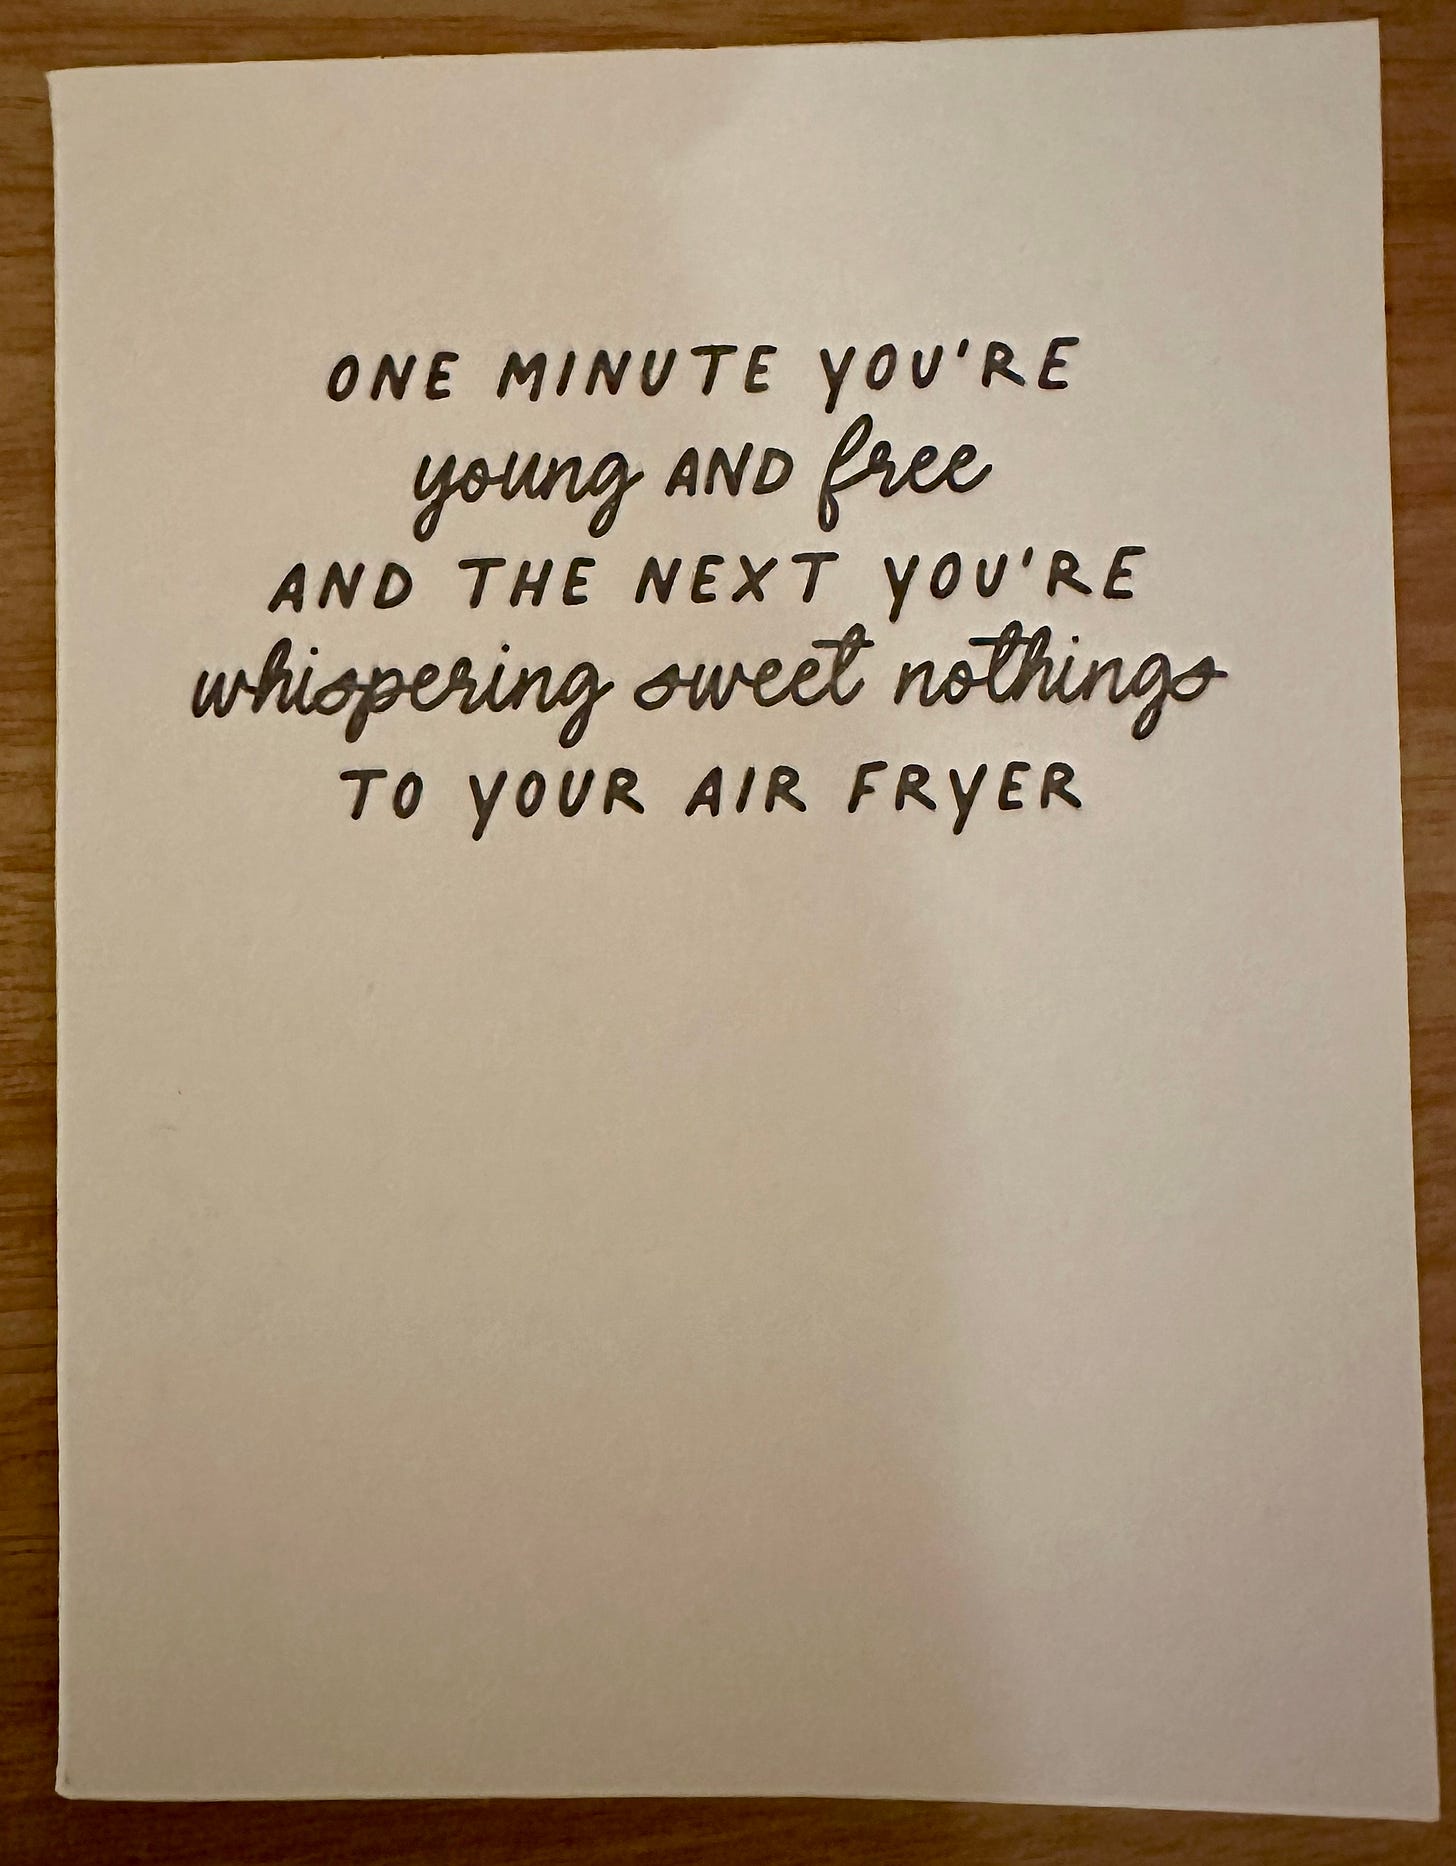 ONE MINUTE YOU'RE
young AND free
AND THE NEXT YOU'RE
whispering sweet nothings
TO YOUR AIR FRYER